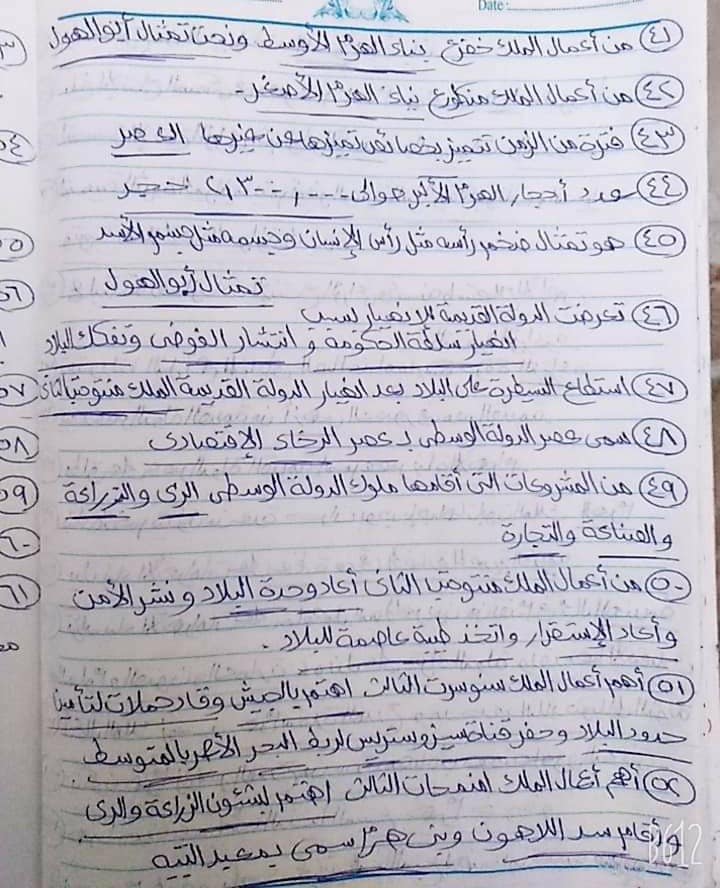 Date:
٤١ من أعمال الملك خفرع بناء الهرم الأوسط ونحت تمثال أبو الهول
٤٢ من أعمال الملك منكاورع بناء الهرم الأصغر.
٤٣ فترة من الزمن تتميز بخصائص تميزها عن غيرها العصر
٤٤ عدد أحجار الهرم الأكبر حوالى ٢,٣٠٠,٠٠٠ حجر
٤٥ هو تمثال ضخم رأسه مثل رأس الإنسان وجسمه مثل جسم الأسد
تمثال أبو الهول
٤٦ تعرضت الدولة القديمة للانهيار بسبب
انهيار سلطة الحكومة و انتشار الفوضى وتفكك البلاد
٤٧ استطاع السيطرة على البلاد بعد انهيار الدولة القديمة الملك منتوحتب الثانى
٤٨ سمى عصر الدولة الوسطى بـ عصر الرخاء الإقتصادى
٤٩ من المشروعات التى أقامها ملوك الدولة الوسطى الرى والزراعة
والصناعة والتجارة
٥٠ من أعمال الملك منتوحتب الثانى أعاد وحدة البلاد و نشر الأمن
وأعاد الإستقرار واتخذ طيبة عاصمة للبلاد.
٥١ أهم أعمال الملك سنوسرت الثالث اهتم بالجيش وقاد حملات لتأمين
حدود البلاد وحفر قناة سيزوستريس لربط البحر الأحمر بالمتوسط
٥٢ أهم أعمال الملك امنمحات الثالث اهتم بشئون الزراعة والرى
وأقام سد اللاهون وبنى هرم سمى بمعبد التيه
B612
٥٧
٥٨
٥٩
٦٠
٦١